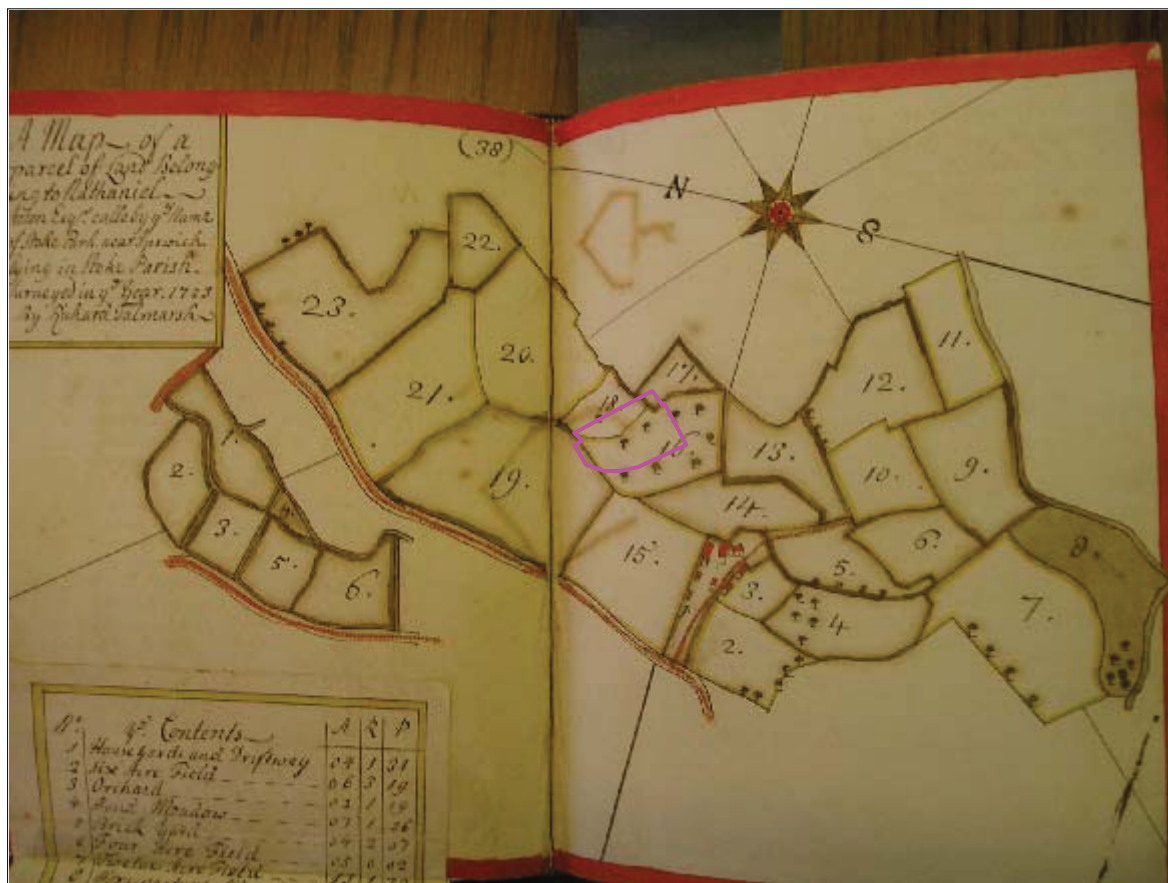 A Map of a
parcel of Land Belong
ing to Nathaniel
Acton Esqr. calld by ye Name
of Stoke Park near Ipswich
lying in Stoke Parish.
Surveyed in ye Year. 1723
By Richard Talmarsh
(38)
N
S
22.
23.
20.
21.
19.
17.
18
16.
11.
12.
13.
10.
9.
14.
15.
6.
5.
8.
7.
3.
4
2.
1.
2.
3.
4
5.
6.
No. ye Contents A R P
1 House yards and Driftway 04 1 31
2 Six Acre Field 06 3 19
3 Orchard 02 1 29
4 Pond Meadow 07 1 26
5 Brick Yard 04 2 07
6 Four Acre Field 05 0 02
7 Twelve Acre Field
8